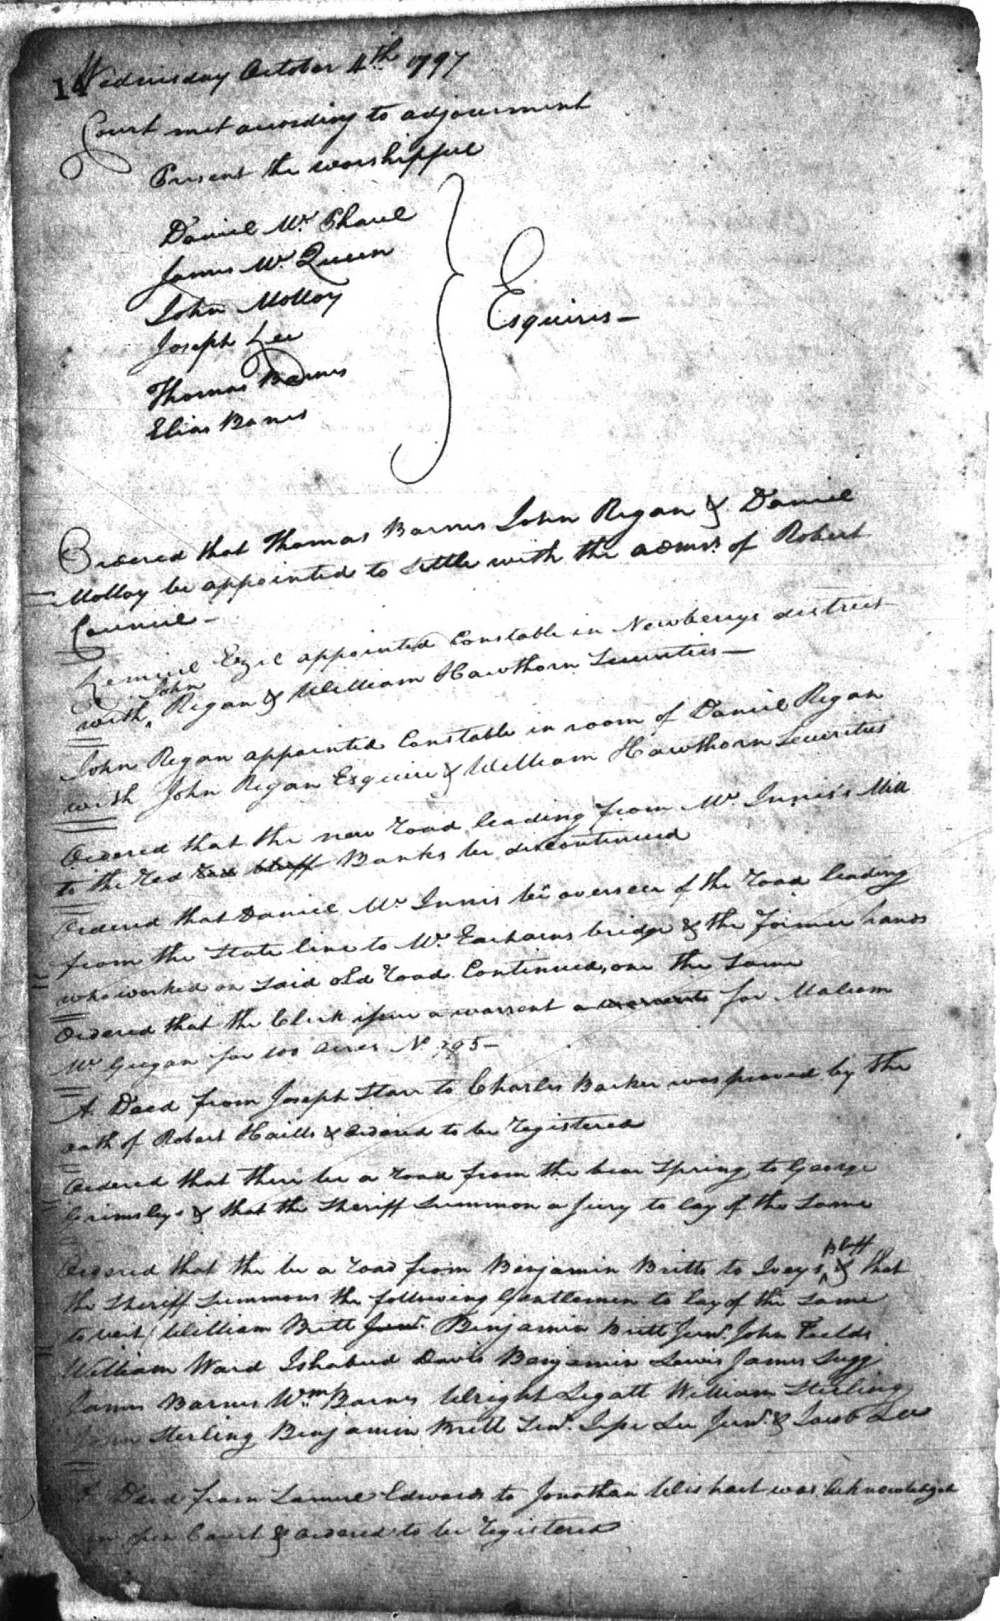 14
Wednesday October 4th 1797
Court met according to adjournment
Present the worshipful
Daniel Mc Phaul
James Mc Queen
John Molloy
Joseph Lee
Thomas Barnes
Elias Barnes
Esquires —
Ordered that Thomas Barnes John Regan & Daniel
Molloy be appointed to settle with the admrs. of Robert
Council —
Lemuel Ezzel appointed Constable in Newberrys district
with John Regan & William Hawthorn Securities —
John Regan appointed Constable in room of Daniel Regan
with John Regan Esquire & William Hawthorn Securities
Ordered that the new road leading from Mc Innis's Mill
to the Red Banks be discontinued
Ordered that Daniel Mc Innis be overseer of the road leading
from the State line to Mc Eacharns bridge & the former hands
who worked on said old road Continued, on the same
Ordered that the Clerk issue a warrent a for Malcom
Mc Gugan for 100 acres No. 395 —
A Deed from Joseph Starr to Charles Barker was proved by the
oath of Robert Hails & ordered to be registered
Ordered that there be a road from the bear Spring to George
Grimsleys & that the Sheriff Summon a Jury to lay of the same
Ordered that the be a road from Benjamin Britts to Iveys Bluff & that
the Sheriff Summons the following Gentlemen to lay of the same
to wit William Britt Junr. Benjamin Britt Junr. John Fields
William Ward Ishabud Davis Benjamin Lewis James Sugg
James Barnes Wm Barnes Wright Legatt William Sterling
John Sterling Benjamin Britt Senr. Jesse Lee Junr. & Jacob Lee
A Deed from Samuel Edwards to Jonathan Wishart was Acknowledged
in open Court & ordered to be registered